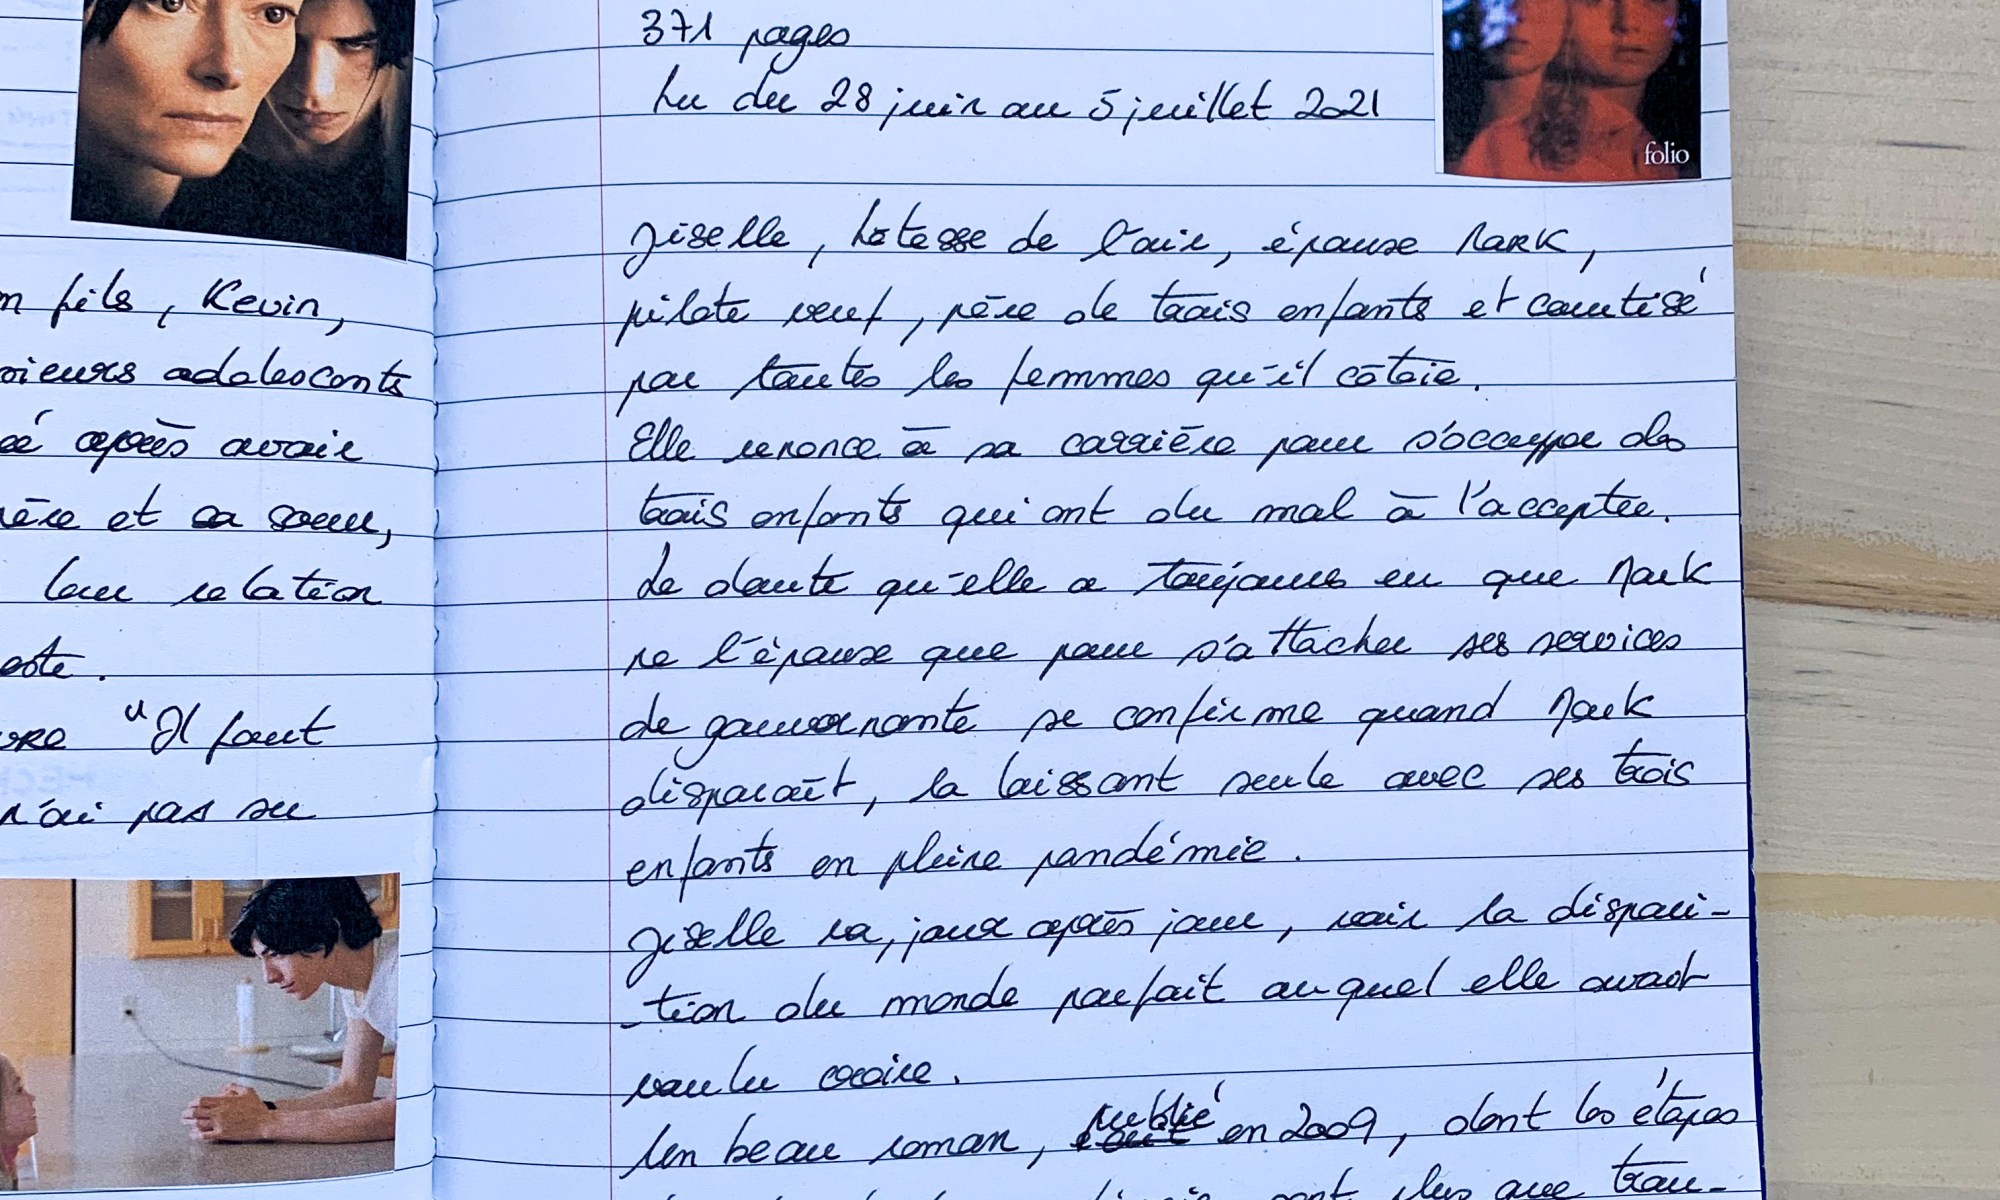 n fils, Kevin,
sieurs adolescents
cé après avoir
père et sa soeur,
leur relation
este.
"Il faut
n'ai pas su
371 pages
Lu du 28 juin au 5 juillet 2021
folio
Giselle, hôtesse de l'air, épouse Mark,
pilote veuf, père de trois enfants et courtisé
par toutes les femmes qu'il côtoie.
Elle renonce à sa carrière pour s'occuper des
trois enfants qui ont du mal à l'accepter.
Le doute qu'elle a toujours eu que Mark
ne l'épouse que pour s'attacher ses services
de gouvernante se confirme quand Mark
disparaît, la laissant seule avec ses trois
enfants en pleine pandémie.
Giselle va, jour après jour, voir la dispari-
-tion du monde parfait auquel elle avait
voulu croire.
Un beau roman, publié en 2009, dont les étapes
sont plus que trou-